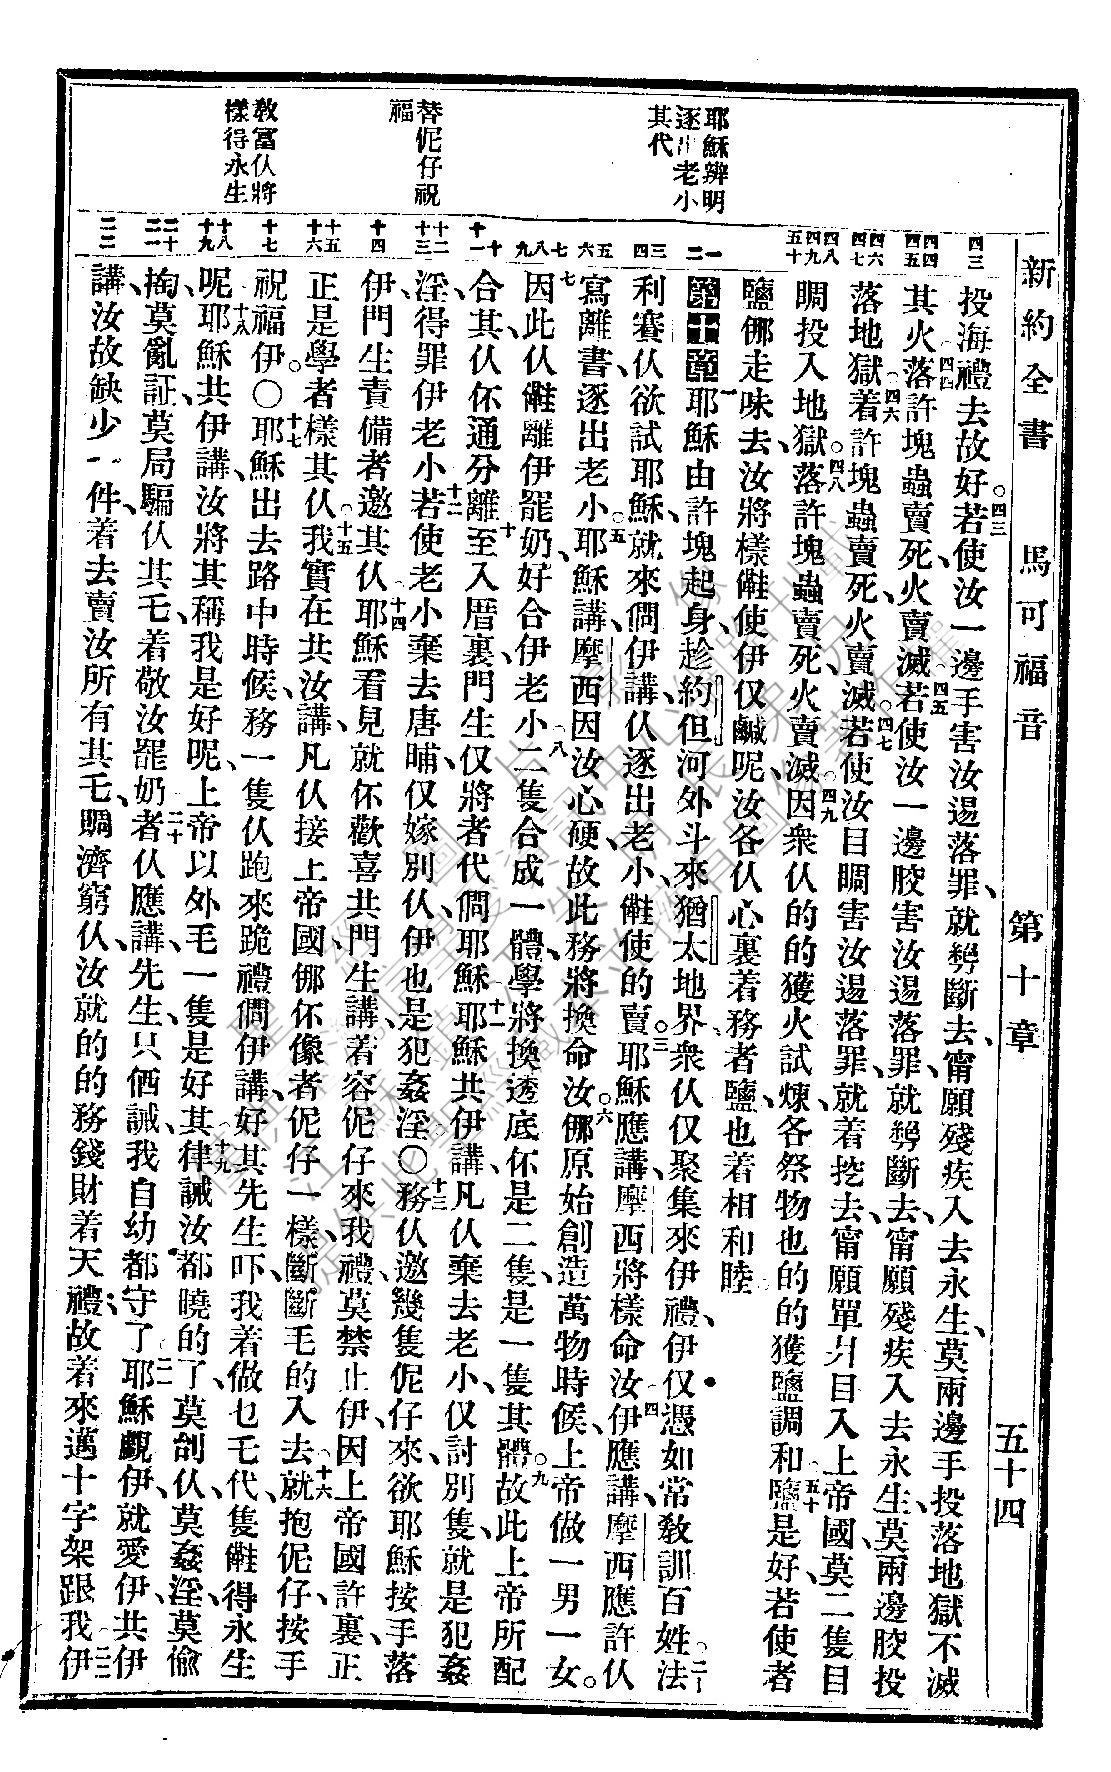 新約全書　馬可福音　第十章　五十四
耶穌辨明
逐出老小
其代
替伲仔祝
福
敎富仈將
樣得永生
四三
四四
四五
四六
四七
四八
四九
五十
一
二
三
四
五
六
七
八
九
十
十一
十二
十三
十四
十五
十六
十七
十八
十九
二十
二一
二二
投海禮去故好。四三若使汝一邊手害汝逿落罪、就剺斷去、甯願殘疾入去永生、莫兩邊手投落地獄不滅
其火落許塊蟲賣死、火賣滅、四五若使汝一邊骹害汝逿落罪、就剺斷去、甯願殘疾入去永生、莫兩邊骹投
落地獄着許塊蟲賣死火賣滅。四七若使汝目睭害汝逿落罪、就着挖去、甯願單爿目入上帝國、莫二隻目
睭投入地獄。四八落許塊蟲賣死、火賣滅、四九因衆仈的的獲火試煉、各祭物也的的獲鹽調和、五十鹽是好若使者
鹽㑚走味去、汝將樣㑷使伊仅鹹呢、汝各仈心裏着務者鹽、也着相和睦
第十章一耶穌由許塊起身、趁約但河外斗來猶太地界、衆仈仅聚集來伊禮、伊仅憑如常敎訓百姓。二法
利賽仈欲試耶穌、就來倜伊講、仈逐出老小、㑷使的賣。三耶穌應講、摩西將樣命汝、四伊應講、摩西應許仈
寫離書、逐出老小。五耶穌講、摩西因汝心硬、故此務將換命汝。六㑚原始創造萬物時候、上帝做一男一女。
七因此仈㑷離伊罷奶、好合伊老小、八二隻合成一體、學將換透底伓是二隻、是一隻其體。九故此上帝所配
合其仈伓通分離、十至入厝裏門生仅將者代倜耶穌、十一耶穌共伊講、凡仈棄去老小、仅討別隻、就是犯姦
淫、得罪伊老小、十二若使老小棄去唐晡、仅嫁別仈、伊也是犯姦淫〇十三務仈邀幾隻伲仔來、欲耶穌按手落
伊、門生責備者邀其仈、十四耶穌看見、就伓歡喜、共門生講、着容伲仔來我禮、莫禁止伊、因上帝國許裏正
正是學者樣其仈。十五我實在共汝講、凡仈接上帝國、㑚伓像者伲仔一樣、斷斷毛的入去、十六就抱伲仔按手
祝福伊。〇十七耶穌出去路中時候、務一隻仈跑來跪禮倜伊講、好其先生吓、我着做乜毛代、隻㑷得永生
呢、十八耶穌共伊講、汝將其稱我是好呢、上帝以外毛一隻是好其、十九律誡汝都曉的了、莫刣仈、莫姦淫、莫偷
掏、莫亂証、莫局騙仈其毛、着敬汝罷奶、二十者仈應講、先生、只價誡我自幼都守了、二一耶穌覷伊、就愛伊、共伊
講、汝故缺少一件、着去賣汝所有其毛、賙濟窮仈、汝就的的務錢財着天禮、故着來、邁十字架跟我、二二伊